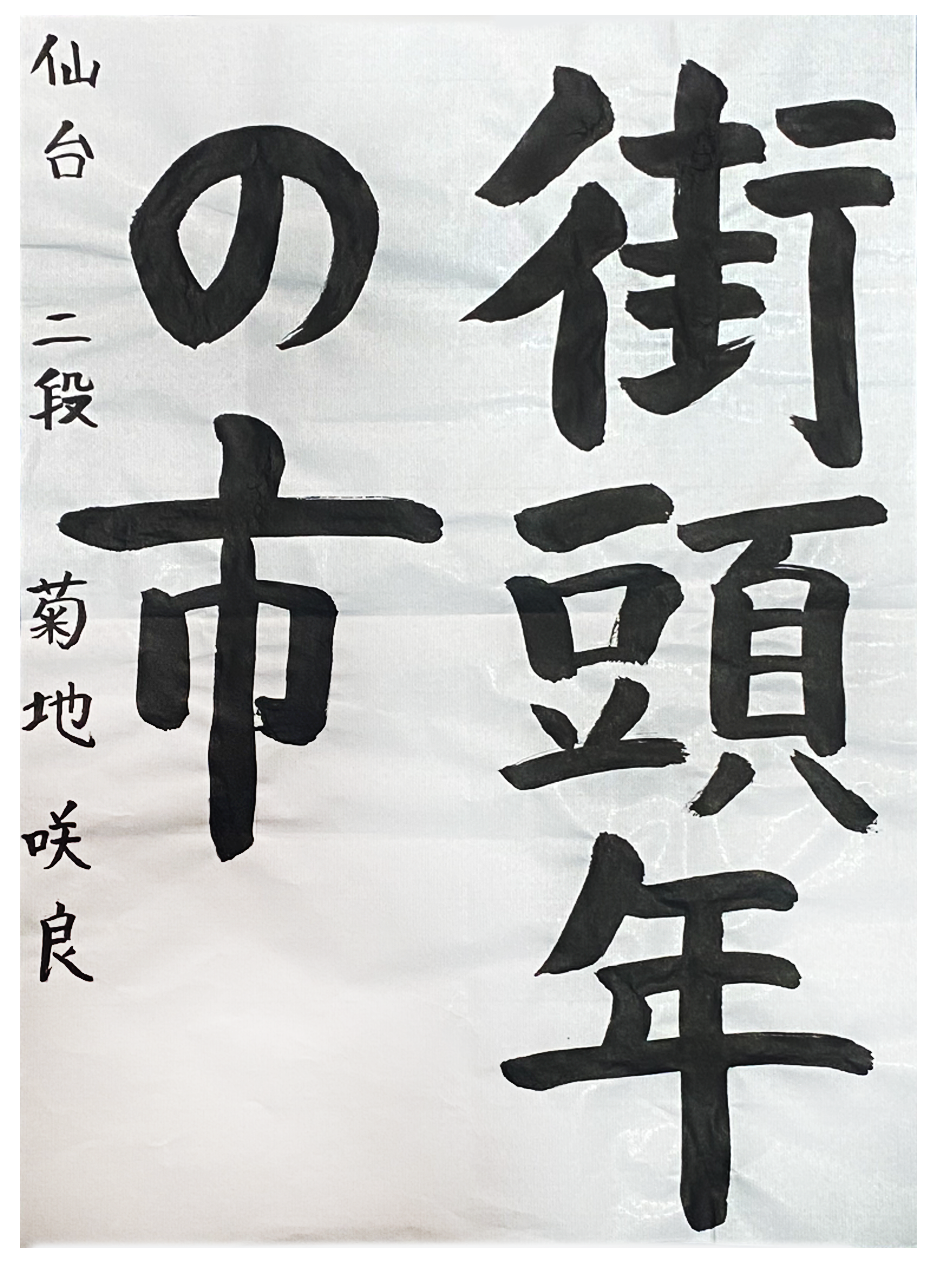 街頭年
の市
仙台 二段 菊地 咲良